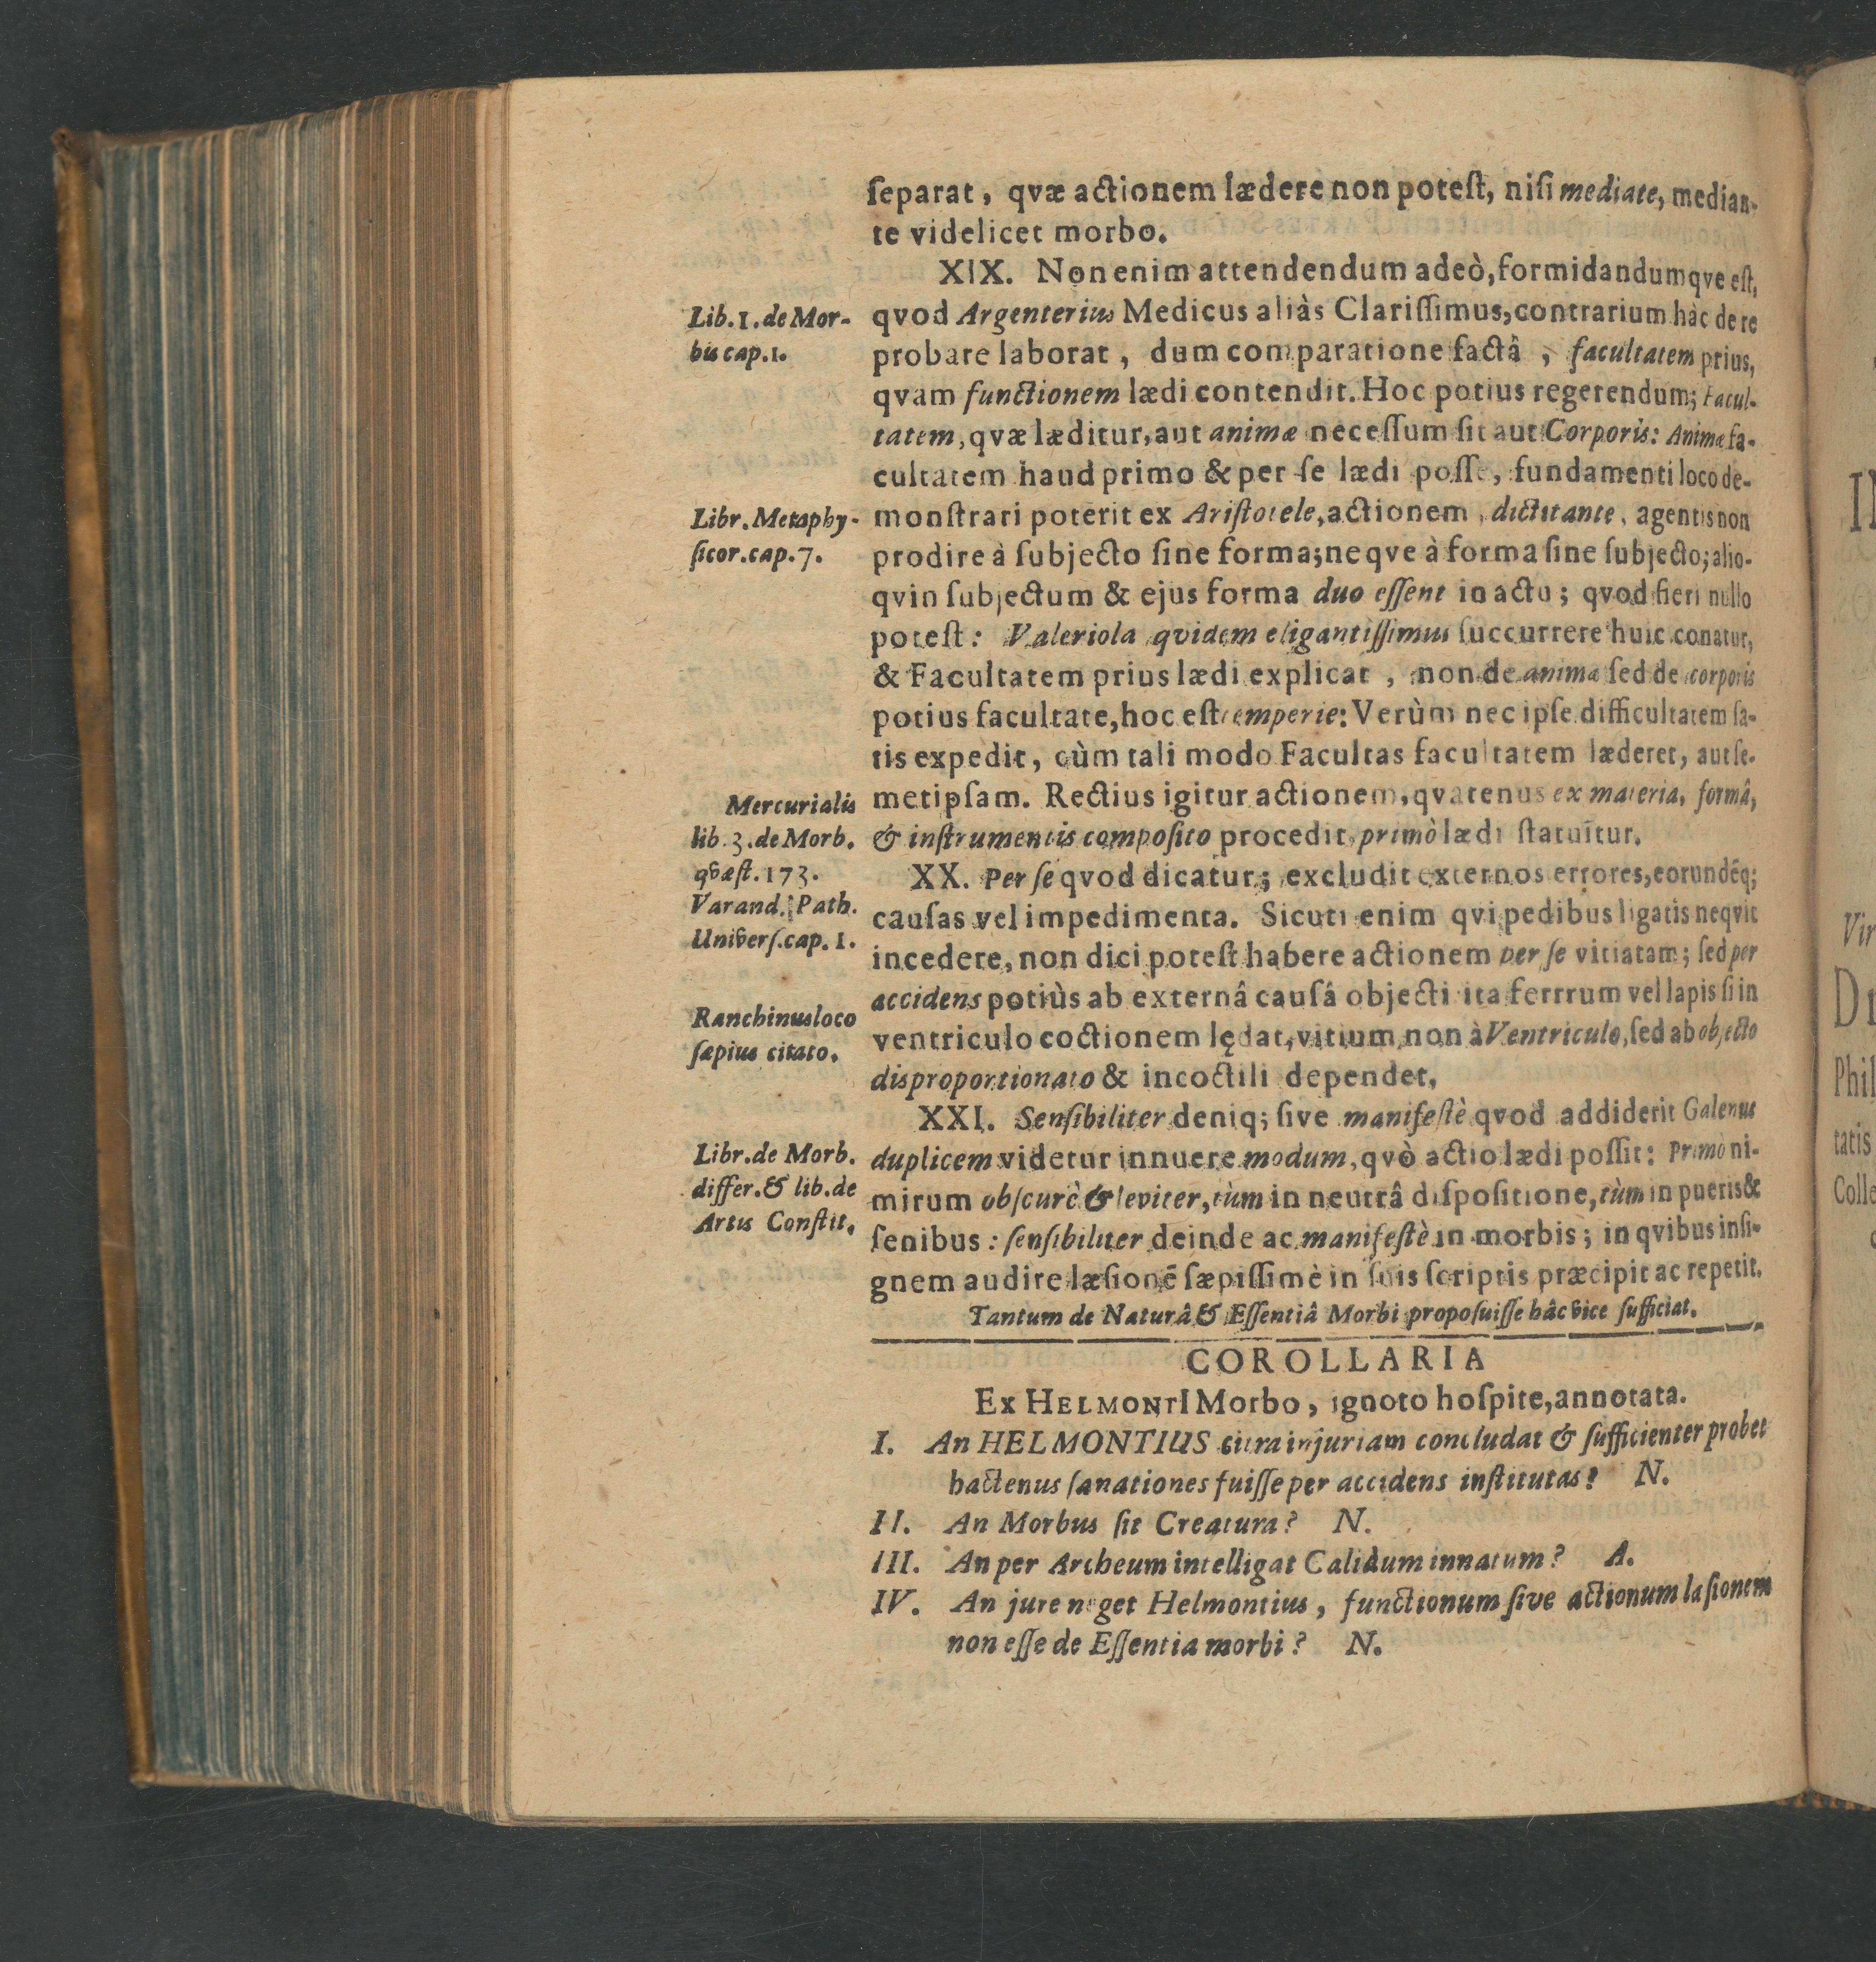 ſeparat, qvæ actionem lædere non poteſt, niſi mediate, median-
te videlicet morbo.
XIX. Non enim attendendum adeò, formidandumqve eſt,
Lib. 1. de Mor-
bis cap. 1.
qvod Argenterius Medicus aliàs Clariſſimus, contrarium hâc de re
probare laborat, dum comparatione factâ, facultatem prius,
qvam functionem lædi contendit. Hoc potius regerendum; Facul-
tatem, qvæ læditur, aut animæ neceſſum ſit aut Corporis: Animæ fa-
cultatem haud primo & per ſe lædi poſſe, fundamenti loco de-
Libr. Metaphy-
ſicor. cap. 7.
monſtrari poterit ex Ariſtotele, actionem, dictitante, agentis non
prodire à ſubjecto ſine forma; neqve à forma ſine ſubjecto; alio-
qvin ſubjectum & ejus forma duo eſſent in actu; qvod fieri nullo
poteſt: Valeriola qvidem eligantiſſimus ſuccurrere huic conatur,
& Facultatem prius lædi explicat, non de anima ſed de corporis
potius facultate, hoc eſt temperie: Verùm nec ipſe difficultatem ſa-
tis expedit, cùm tali modo Facultas facultatem læderet, aut ſe-
Mercurialis
lib. 3. de Morb.
qvæſt. 173.
Varand. Path.
Univerſ. cap. 1.
metipſam. Rectius igitur actionem, qvatenus ex materia, formâ,
& inſtrumentis compoſito procedit, primò lædi ſtatuitur.
XX. Per ſe qvod dicatur; excludit externos errores, eorundēq;
cauſas vel impedimenta. Sicuti enim qvi pedibus ligatis neqvit
incedere, non dici poteſt habere actionem per ſe vitiatam; ſed per
Ranchinus loco
ſæpius citato.
accidens potiùs ab externâ cauſâ objecti ita ferrrum vel lapis ſi in
ventriculo coctionem lędat, vitium non à Ventriculo, ſed ab objecto
disproportionato & incoctili dependet.
XXI. Senſibiliter deniq; ſive manifeſtè qvod addiderit Galenus
Libr. de Morb.
differ. & lib. de
Artis Conſtit.
duplicem videtur innuere modum, qvò actio lædi poſſit: Primò ni-
mirum obſcurè & leviter, tùm in neutrâ diſpoſitione, tùm in pueris &
ſenibus: ſenſibiliter deinde ac manifeſtè in morbis; in qvibus inſi-
gnem audire læſionē ſæpiſſimè in ſuis ſcriptis præcipit ac repetit.
Tantum de Naturâ & Eſſentiâ Morbi propoſuiſſe hâc vice ſufficiat.
COROLLARIA
Ex HELMONTI Morbo, ignoto hoſpite, annotata.
I. An HELMONTIUS citra injuriam concludat & ſufficienter probet
hactenus ſanationes fuiſſe per accidens inſtitutas? N.
II. An Morbus ſit Creatura? N.
III. An per Archeum intelligat Calidum innatum? A.
IV. An jure neget Helmontius, functionum ſive actionum laſionem
non eſſe de Eſſentia morbi? N.
IN
Vir
Phil
tatis
Colle